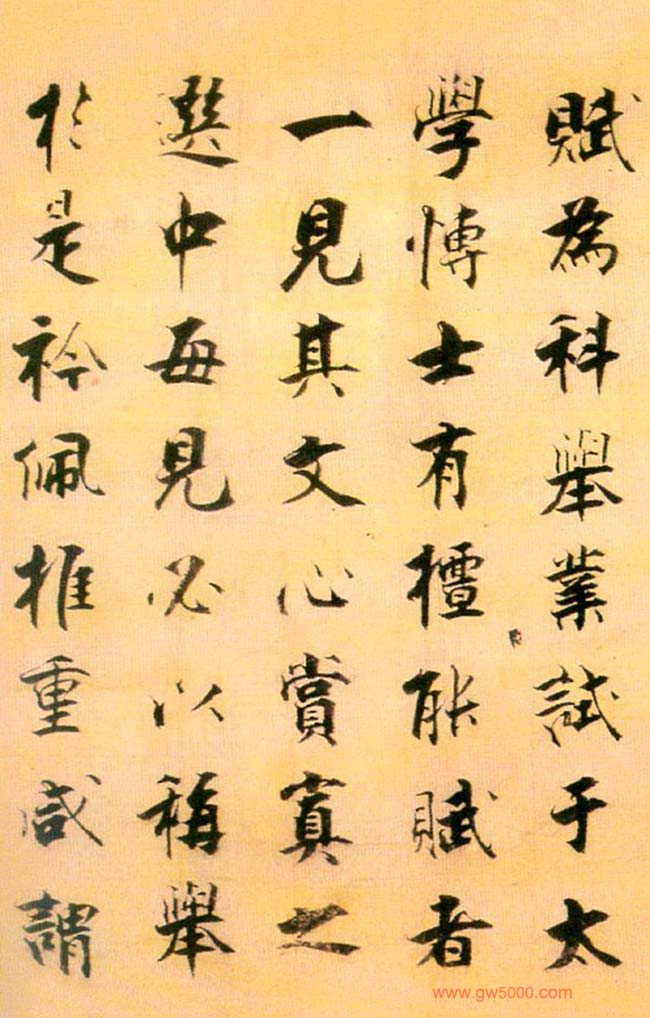 賦為科舉業試于太
學博士有擅能賦者
一見其文心賞寘之
選中每見必以稱舉
於是衿佩推重咸謂
www.gw5000.com